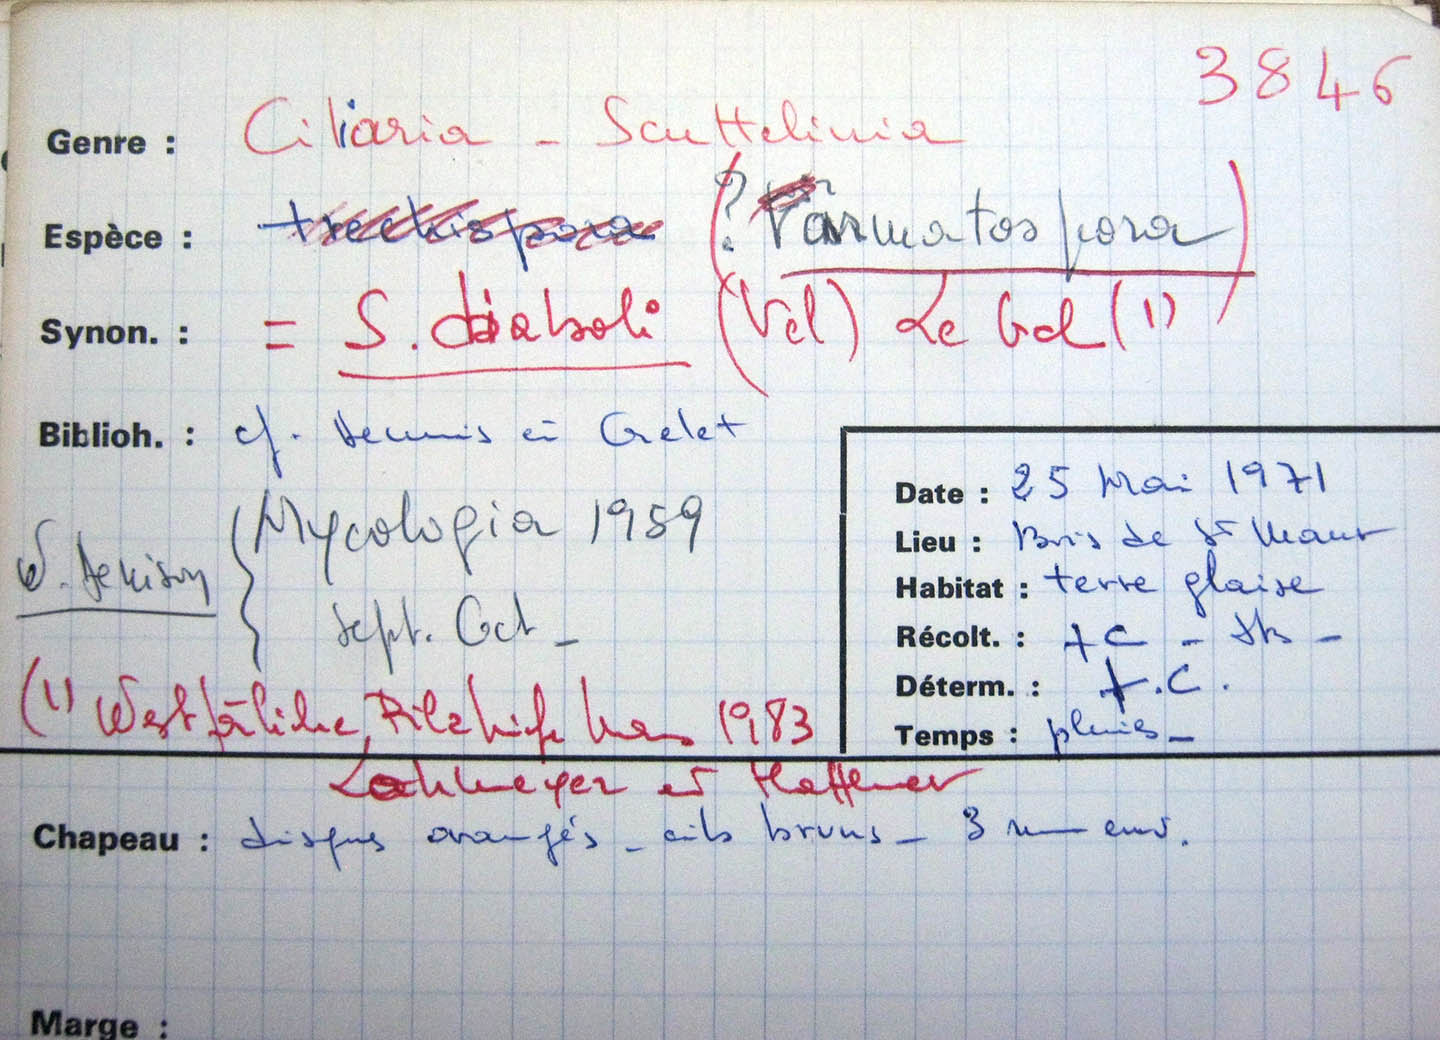 3846
Genre : Ciliaria - Scuttelinia
Espèce : trechispora (? armatospora)
Synon. : = S. diaboli (Vel) Le Gal (1)
Biblioh. : cf. Dennis et Grelet
Mycologia 1959
W. Denison
Sept. Oct -
(1) Westfälische Pilzbriefe 1983
Lohmeyer et Häffner
Date : 25 Mai 1971
Lieu : Bois de St Maur
Habitat : terre glaise
Récolt. : + C -
Déterm. : +.C.
Temps : pluies -
Chapeau : disques orangés - cils bruns - 3 mm env.
Marge :